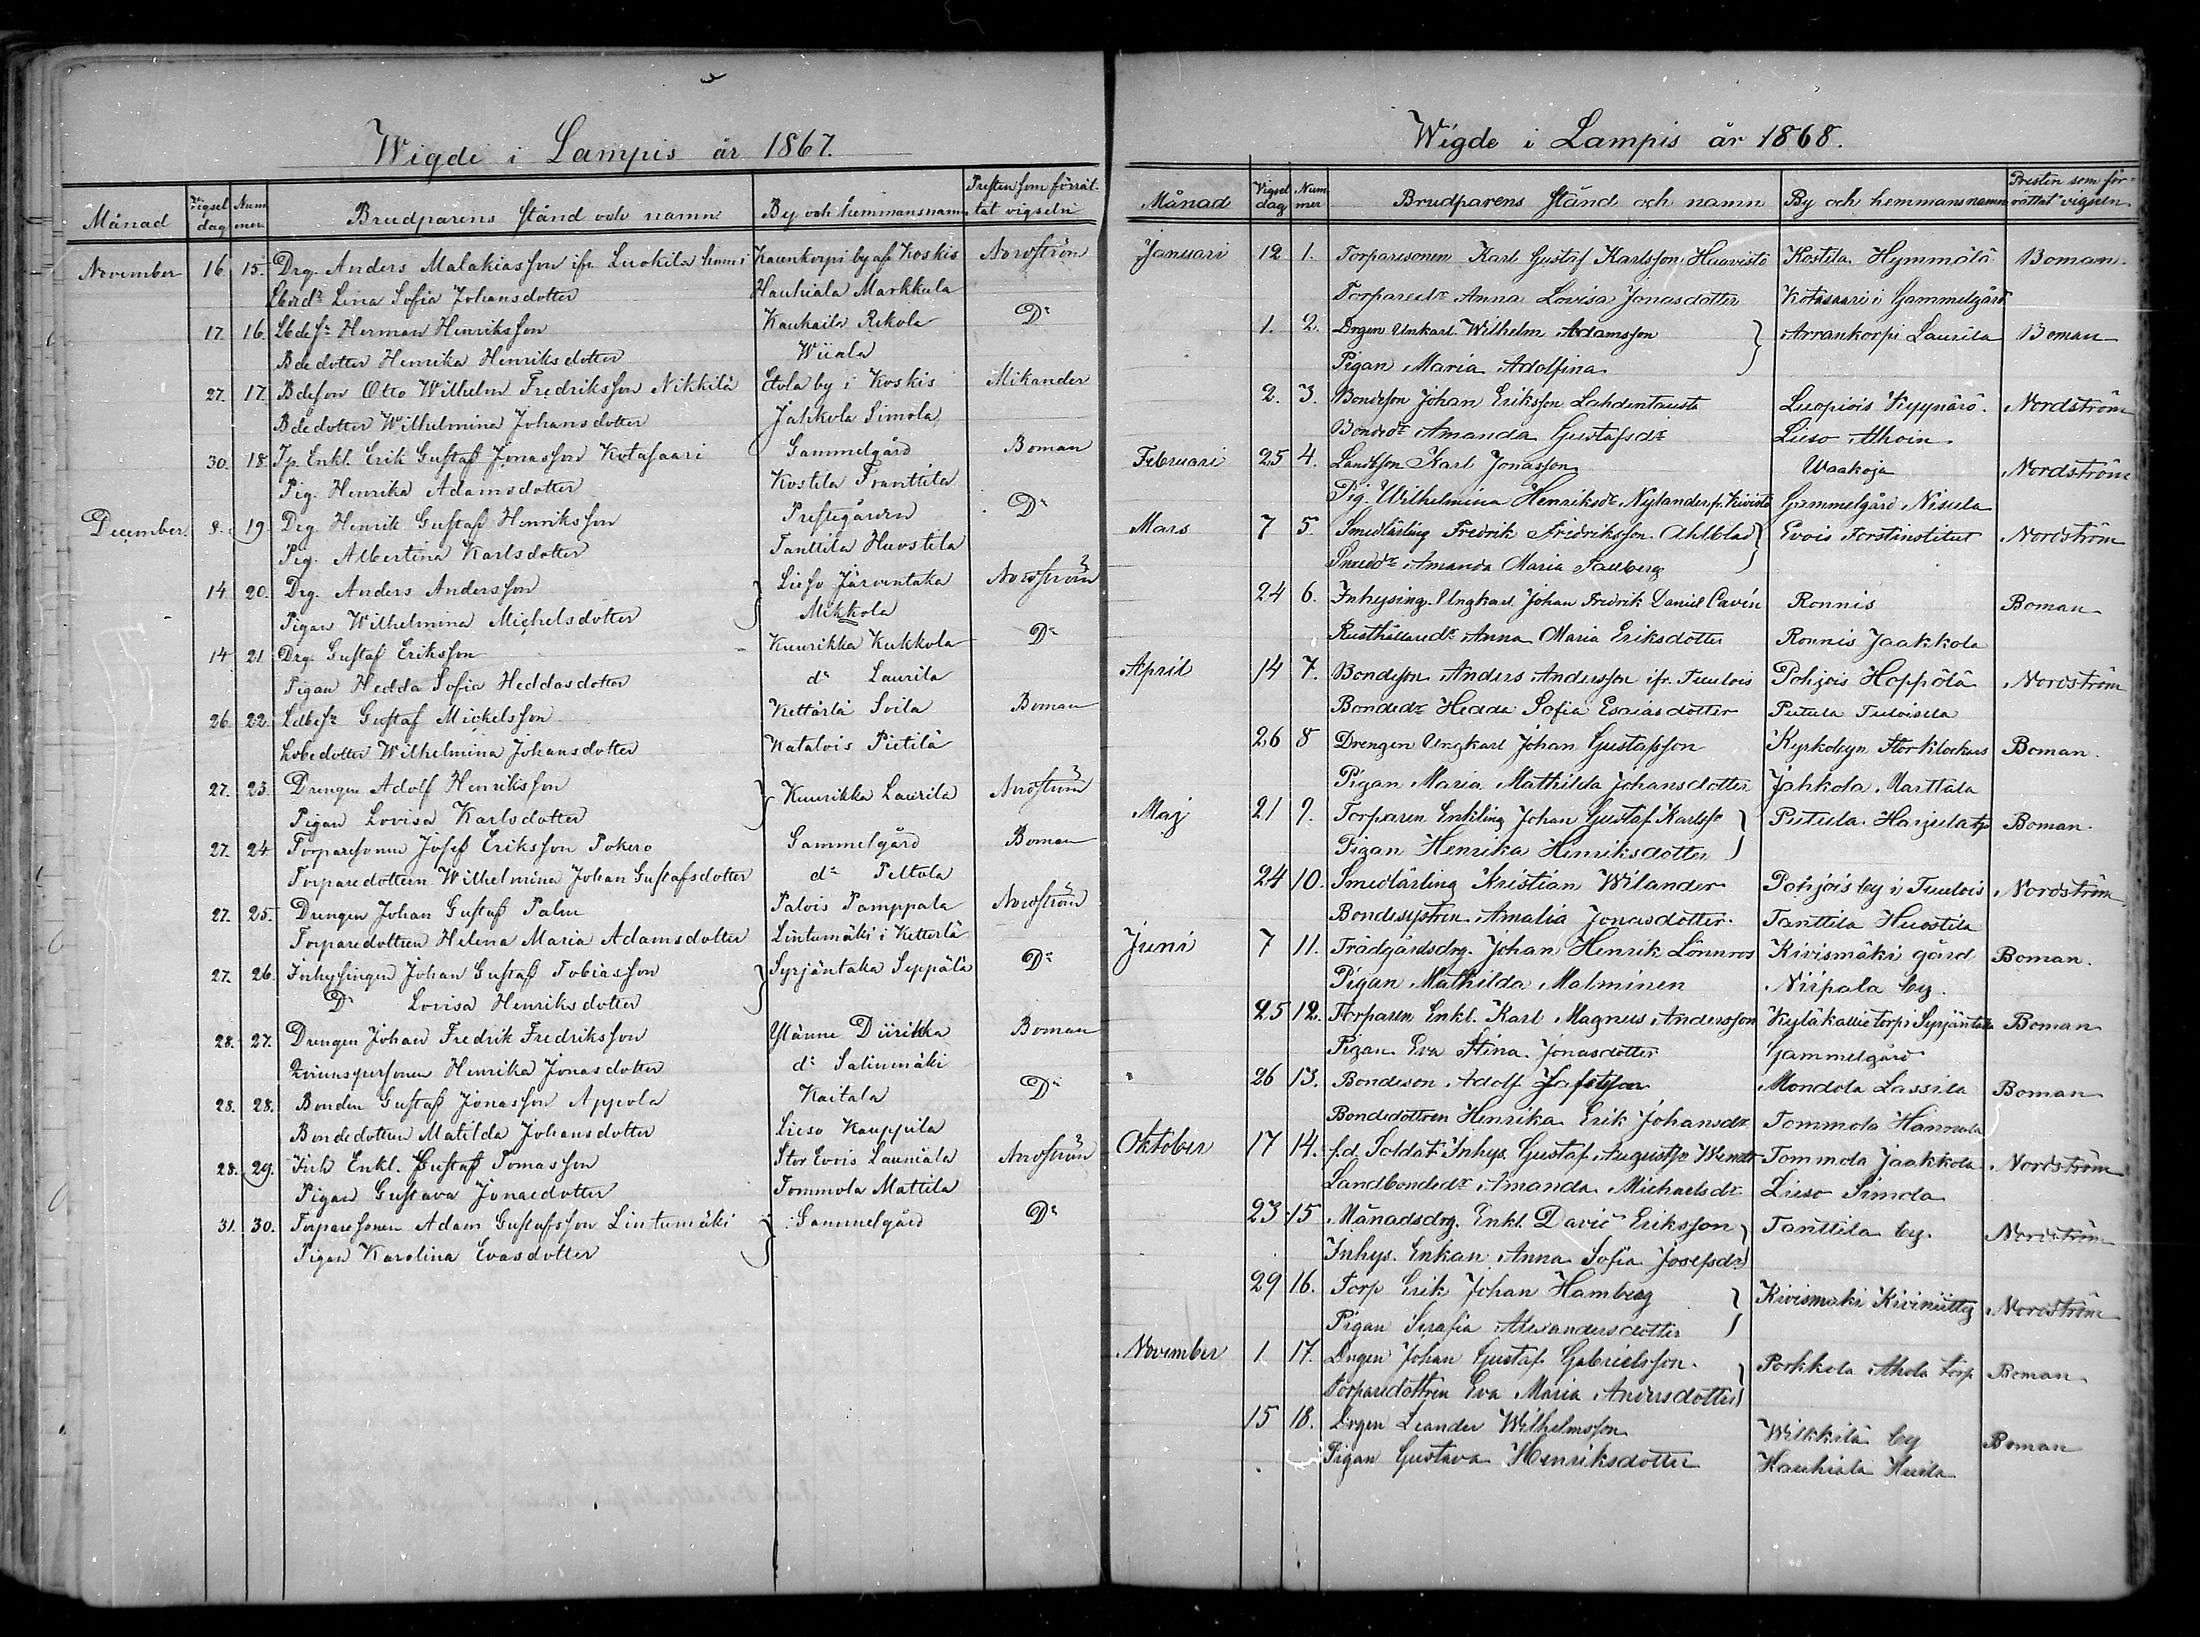 Wigde i Lampis år 1867.
Månad Vigsel dag Num mer Brudparens stånd och namn By och hemmansnamn Presten som förrättat vigseln
November 16 15. Drg. Anders Malakiasson ifr. Kaunkorpi by af Koskis Nordström
Lina Sofia Johansdotter Hauhiala Markkula
17. 16. Lbdesr Herman Henriksson Rekola Dr
Bdedotter Henrika Henriksdotter Wiiala
27. 17. Bdeson Otto Wilhelm Fredriksson Nikkilä Etola by i Koskis Mikander
Bdedotter Wilhelmina Johansdotter Jahkola Simola
30. 18. Tp. Enkl. Erik Gustaf Jonasson Kotasaari Gammelgård Boman
Pig. Henrika Adamsdotter Kostila Franttila
December 8. 19. Drg. Henrik Gustaf Henriksson Prestegården Dr
Pig. Albertina Karlsdotter Tanttila Huostila
14 20. Drg. Anders Andersson } Lieso Järventaka Nordström
Pigan Wilhelmina Michelsdotter Mikkola
14 21 Drg. Gustaf Eriksson Kuurikka Kukkola Dr
Pigan Hedda Sofia Heddasdotter dr Laurila
26. 22. Gustaf Mickelsson Kettärlä Soila Boman
Lbdedotter Wilhelmina Johansdotter Katalois Pietilä
27. 23. Drengen Adolf Henriksson } Kuurikka Laurila Nordström
Pigan Lovisa Karlsdotter
27. 24 Torparesonen Josef Eriksson Pokero Gammelgård Boman
Torparedottern Wilhelmina Johan Gustafsdotter dr Peltola
27. 25. Drengen Johan Gustaf Palm Palois Pamppala Nordström
Torparedottren Helena Maria Adamsdotter Lintumäki i Ketterlä
27. 26. Inhysingen Johan Gustaf Tobiasson } Syrjäntaka Seppälä Dr
Dr Lovisa Henriksdotter
28. 27. Drengen Johan Fredrik Fredriksson Ylänne Diirikka Boman
Qvinnspersonen Henrika Jonasdotter dr Salinmäki
28. 28. Bonden Gustaf Jonasson Appola Kaitala Dr
Bondedottren Matilda Johansdotter Lieso Kauppila
28. 29. Inh. Enkl. Gustaf Tomasson Stor Evois Launiala Nordström
Pigan Gustava Jonaedotter Tommola Mattila
31. 30. Torparesonen Adam Gustafsson Lintumäki } Gammelgård Dr
Pigan Karolina Evasdotter
Wigde i Lampis år 1868.
Månad Vigsel dag Num mer Brudparens stånd och namn By och hemmansnamn Presten som förrättat vigseln
Januari 12 1. Torparesonen Karl Gustaf Karlsson Haavisto Kostila Hymmälä Boman.
Torparedr Anna Lovisa Jonasdotter Kotasaari i Gammelgård
1. 2. Drgen Unkarl. Wilhelm Adamsson } Arrankorpi Laurila Boman
Pigan Maria Adolfina
2. 3. Bondeson Johan Eriksson Lahdentausta Luopiois Kyynärö. Nordström
Bondedr Amanda Gustafsdr Lieso Alhoin.
Februari 25 4. Landtson Karl Jonasson Waakoja Nordström
Pig. Wilhelmina Henriksdr Nylander fr. Kivistö Gammelgård Nisula
Mars 7 5. Smedlärling Fredrik Fredriksson Ahlblad } Evois Forstinstitut Nordström
Smeddr Amanda Maria Sallberg
24 6. Inhysing. Ungkarl Johan Fredrik Daniel Cavén Ronnis Boman
Rusthållaredr Anna Maria Eriksdotter Ronnis Jaakkola
April 14 7. Bondeson Anders Andersson ifr. Tuulois Pohjois Hoppölä Nordström
Bondedr Hedda Sofia Esaiasdotter Putula Tuloisela
26 8 Drengen Ungkarl Johan Gustafsson Kyrkobyn Storklockars Boman.
Pigan Maria Mathilda Johansdotter Jahkola Marttala
Maj 21 9. Torparen Enkling Johan Gustaf Karlssr } Putula Harjula tp Boman.
Pigan Henrika Henriksdotter
24 10. Smedlärling Kristian Wilander Pohjois by i Tuulois Nordström
Bondesystren Amalia Jonasdotter. Tanttila Huostila
Juni 7 11. Trädgårdsdrg. Johan Henrik Lönnroos Kivismäki gård Boman.
Pigan Mathilda Malminen Niipala by.
25 12. Torparen Enkl. Karl Magnus Andersson Kyläkallio torp i Syrjäntaka Boman
Pigan Eva Stina Jonasdotter Gammelgård
26 13. Bondeson Adolf Jafetsson Mondola Lassila Boman
Bondedottren Henrika Erik Johansdr Tommola Hannula
Oktober 17 14. f.d. Soldat Inhys. Gustaf Augustsr Wendt Tommola Jaakkola Nordström
Landbondedr Amanda Michaelsdr. Lieso Simola
23 15 Månadsdrg. Enkl. David Eriksson } Tanttila by. Nordström
Inhys. Enkan Anna Sofia Josefsdr
29 16. Torp Erik Johan Hamberg } Kivismäki Kiviniitty Nordström
Pigan Serafia Alexandersdotter
November 1 17. Drgen Johan Gustaf Gabrielsson. } Porkkola Ahola torp Boman
Torparedottren Eva Maria Andersdotter
15 18. Drgen Leander Wilhelmsson Wilkkilä by Boman
Pigan Gustava Henriksdotter Hauhiala Huila